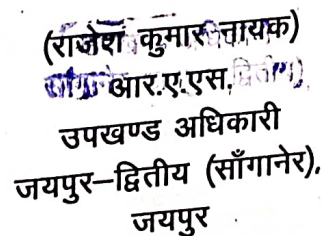 (राजेश कुमार नायक)
आर.ए.एस.
उपखण्ड अधिकारी
जयपुर–द्वितीय (साँगानेर),
जयपुर